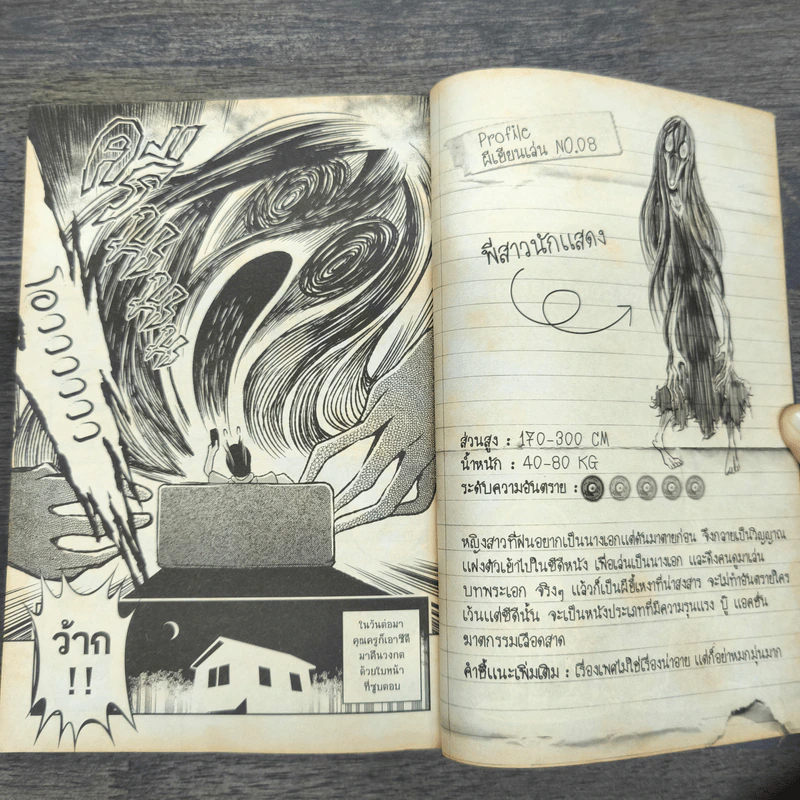 โอาาาาาาา
ว้าก
!!
ในวันต่อมา
คุณครูก็เอาซีดี
มาคืนวงกต
ด้วยใบหน้า
ที่ซูบตอบ
Profile
ผีเฮียนเล่น NO.08
พี่สาวนักแสดง
ส่วนสูง : 170-300 CM
น้ำหนัก : 40-80 KG
ระดับความอันตราย :
หญิงสาวที่ฝันอยากเป็นนางเอกแต่ดันมาตายก่อน จึงกลายเป็นวิญญาณ
แฝงตัวเข้าไปในซีดีหนัง เพื่อเล่นเป็นนางเอก และดึงคนดูมาเล่น
บทพระเอก จริงๆ แล้วก็เป็นผีขี้เหงาที่น่าสงสาร จะไม่ทำอันตรายใคร
เว้นแต่ซีดีนั้น จะเป็นหนังประเภทที่มีความรุนแรง บู๊ แอคชั่น
ฆาตกรรมเลือดสาด
คำชี้แนะเพิ่มเติม : เรื่องเพศไม่ใช่เรื่องน่าอาย แต่ก็อย่าหมกมุ่นมาก